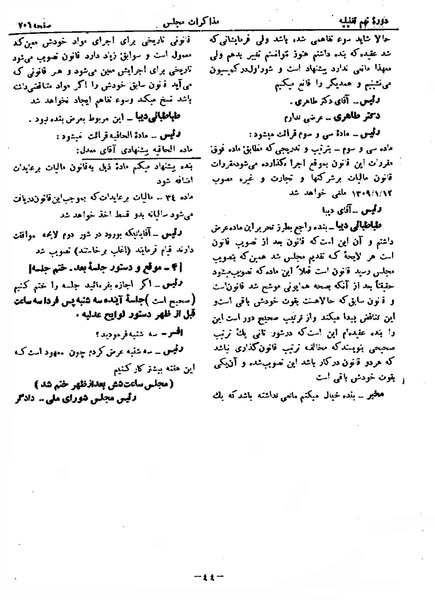 دورهٔ نهم تقنینیه
مذاکرات مجلس
صفحه ۷۰۶
حالا شاید سوء تفاهمی شده باشد ولی فرمایشاتی که
شد عقیده که بنده داشتم هنوز نتوانستم تغییر بدهم ولی
معهذا داعی ندارد پیشنهاد است و شور اول در کمیسیون
می‌نشینیم و همدیگر را قانع میکنیم
رئیس ـ آقای دکتر طاهری.
دکتر طاهری ـ عرضی ندارم
رئیس ـ مادهٔ سی و سوم قرائت میشود:
ماده سی و سوم ـ بترتیب و تدریجی که مطابق ماده فوق
مقررات این قانون بموقع اجرا گذاشته میشود مقررات
قانون مالیات بر شرکتها و تجارت و غیره مصوب
۱۳۰۹/۱/۱۲ ملغی خواهد شد
رئیس ـ آقای دیبا
طباطبائی دیبا ـ بنده راجع بطرز تحریر این ماده عرض
داشتم و آن این است که قانون بعد از تصویب قانون
است هر لایحهٔ که تقدیم مجلس شد همین که بتصویب
مجلس رسید قانون است فعلاً این ماده که تصویب میشود
حقیقتاً بعد از آنکه بصحه همایونی موشح شد قانون است
و قانون سابق که حالا هست بقوت خودش باقی است و
این تناقض پیدا میکند و از ترتیب صحیح دور است این
را بنده عقیده‌ام این است که در شور ثانی یک ترتیب
صحیحی بنویسند که مخالف ترتیب قانون گذاری نباشد
که هر دو قانون در کار باشد این تصویب شده و آن یکی
بقوت خودش باقی است
مخبر ـ بنده خیال میکنم مانعی نداشته باشد که یک
قانونی تاریخی برای اجرای مواد خودش معین کند
معمول است و سوابق زیاد دارد قانون تصویب میشود
تاریخی برای اجرایش معین میشود و هر قانونی که
می‌آید قانون سابق خودش را اگر مواد متناقضی داشته
باشد نسخ میکند و سوء تفاهم ایجاد نخواهد شد
طباطبائی دیبا ـ این مربوط بعرض بنده نبود.
رئیس ـ مادهٔ الحاقیه قرائت میشود:
ماده الحاقیه پیشنهادی آقای معدل:
بنده پیشنهاد میکنم مادهٔ ذیل به قانون مالیات بر عایدات
اضافه شود
ماده ۳۴ـ مالیات بر عایدات که بموجب این قانون دریافت
می‌شود سالیانه بدو قسط اخذ خواهد شد
رئیس ـ آقایانیکه بورود در شور دوم لایحه موافقت
دارند قیام فرمایند (اغلب برخاستند) تصویب شد
[۴ ـ موقع و دستور جلسهٔ بعد ـ ختم جلسه]
رئیس ـ اگر اجازه بفرمائید جلسه را ختم کنیم
(صحیح است) جلسهٔ آینده سه شنبه پس فردا سه ساعت
قبل از ظهر دستور لوایح عدلیه.
افسر ـ سه شنبه فرمودید؟
رئیس ـ سه شنبه عرض کردم چون معهود است که
این هفته بیشتر کار کنیم
(مجلس ساعت شش بعد از ظهر ختم شد)
رئیس مجلس شورای ملی ـ دادگر
ـ۴٤ـ